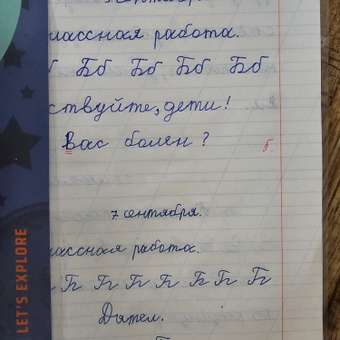 сентября.
классная работа.
Бб Бб Бб Бб
ствуйте, дети!
Вас болен?
7 сентября.
классная работа.
Гг Гг Гг Гг Гг Гг
Дятел.
LET'S EXPLORE